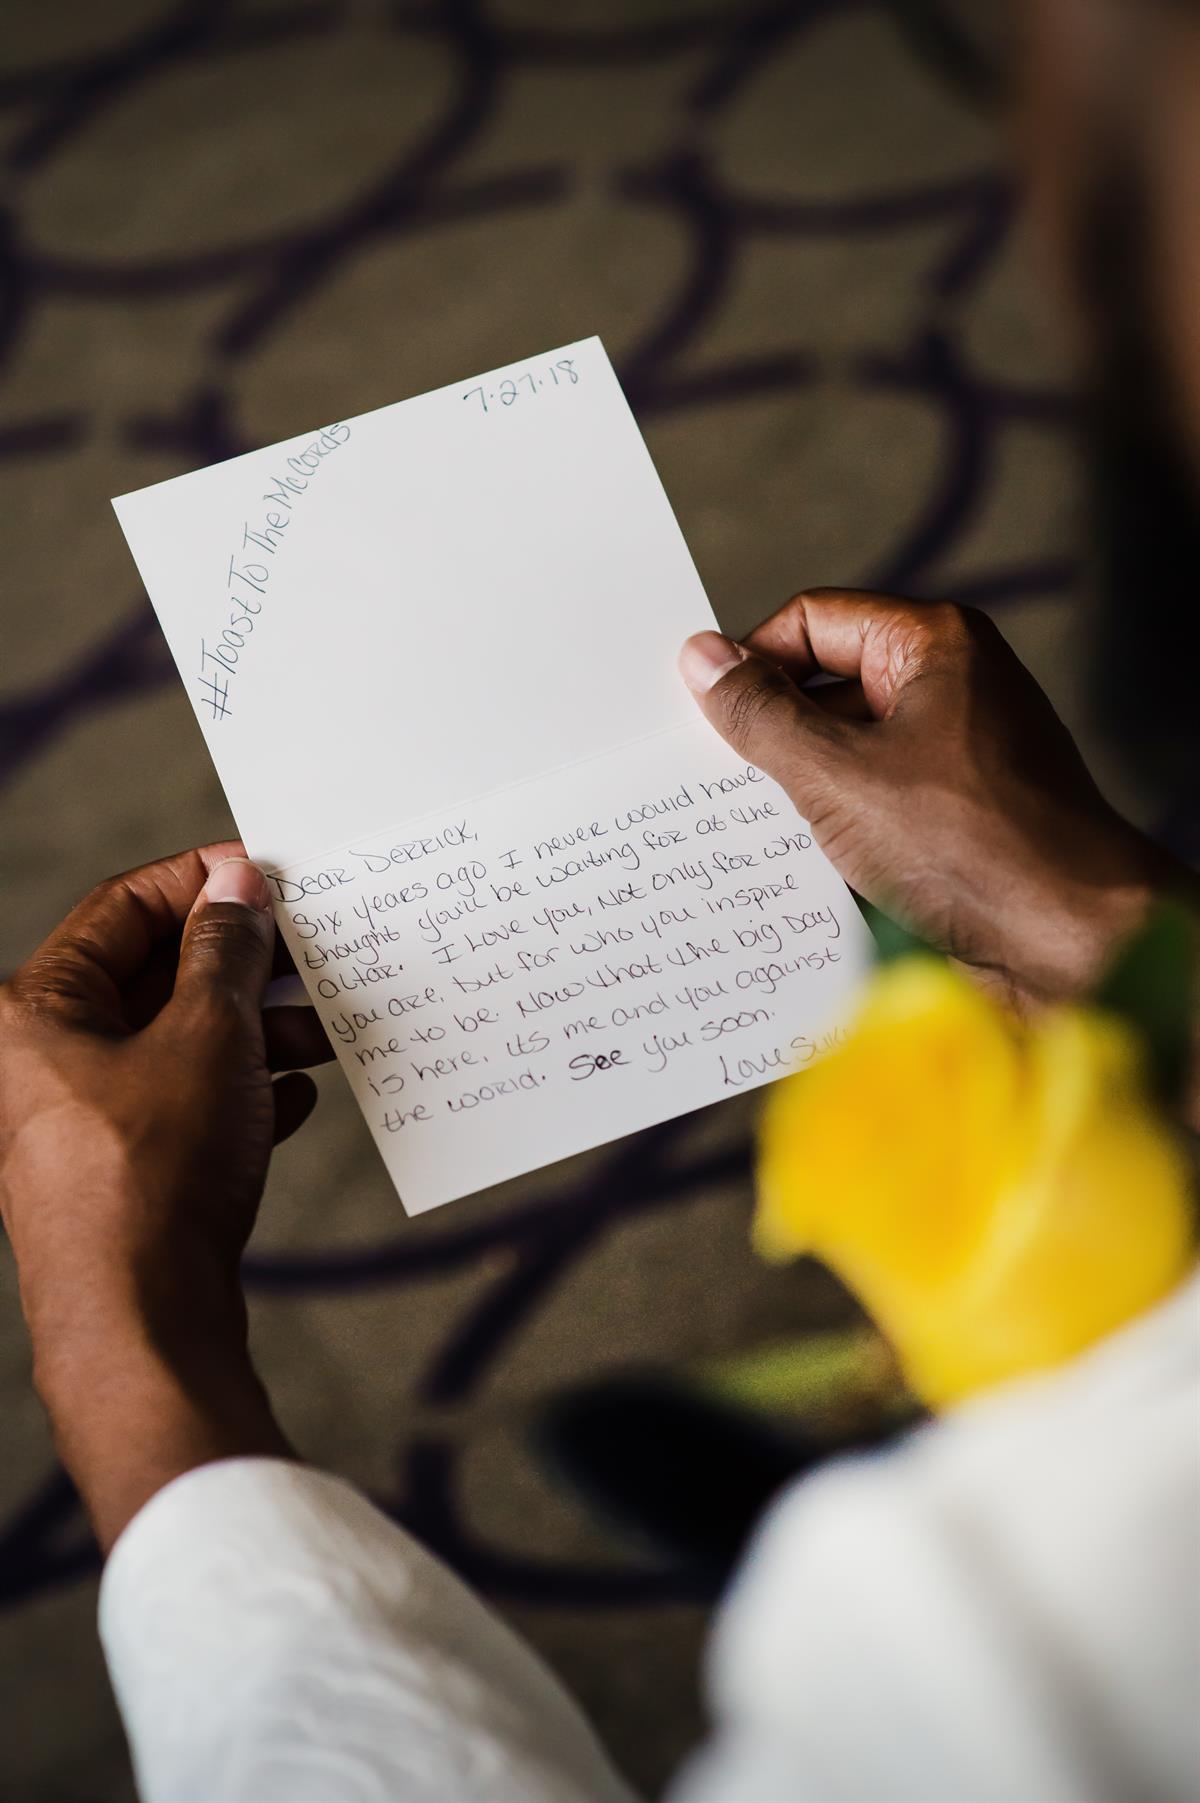 7.27.18
#Toast To The McCords
Dear Derrick,
Six years ago I never would have
thought you'll be waiting for at the
altar. I Love you, Not only for who
you are, but for who you inspire
me to be. Now that the big Day
is here, its me and you against
the world. See you soon.
Love